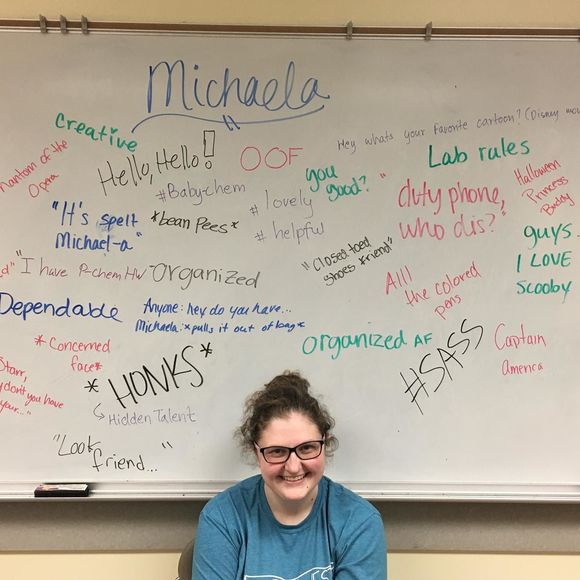 Michaela
Creative
Hello, Hello!
OOF
Hey whats your favorite cartoon? (Disney mov
Phantom of the
Opera
#Baby-chem
you
good?
Lab rules
Halloween
Princess
Buddy
"It's spelt
Michael-a"
*bean Pees*
# lovely
# helpful
"duty phone,
who dis?"
guys..
I LOVE
Scooby
"I have P-chem HW
Organized
"Closed toed
shoes friend"
All
the colored
pens
Dependable
Anyone: hey do you have...
Michaela: *pulls it out of bag*
Organized AF
#SASS
Captain
america
*Concerned
face*
*HONKS*
↳ Hidden Talent
Starr,
don't you have
your..."
"Look
friend..."